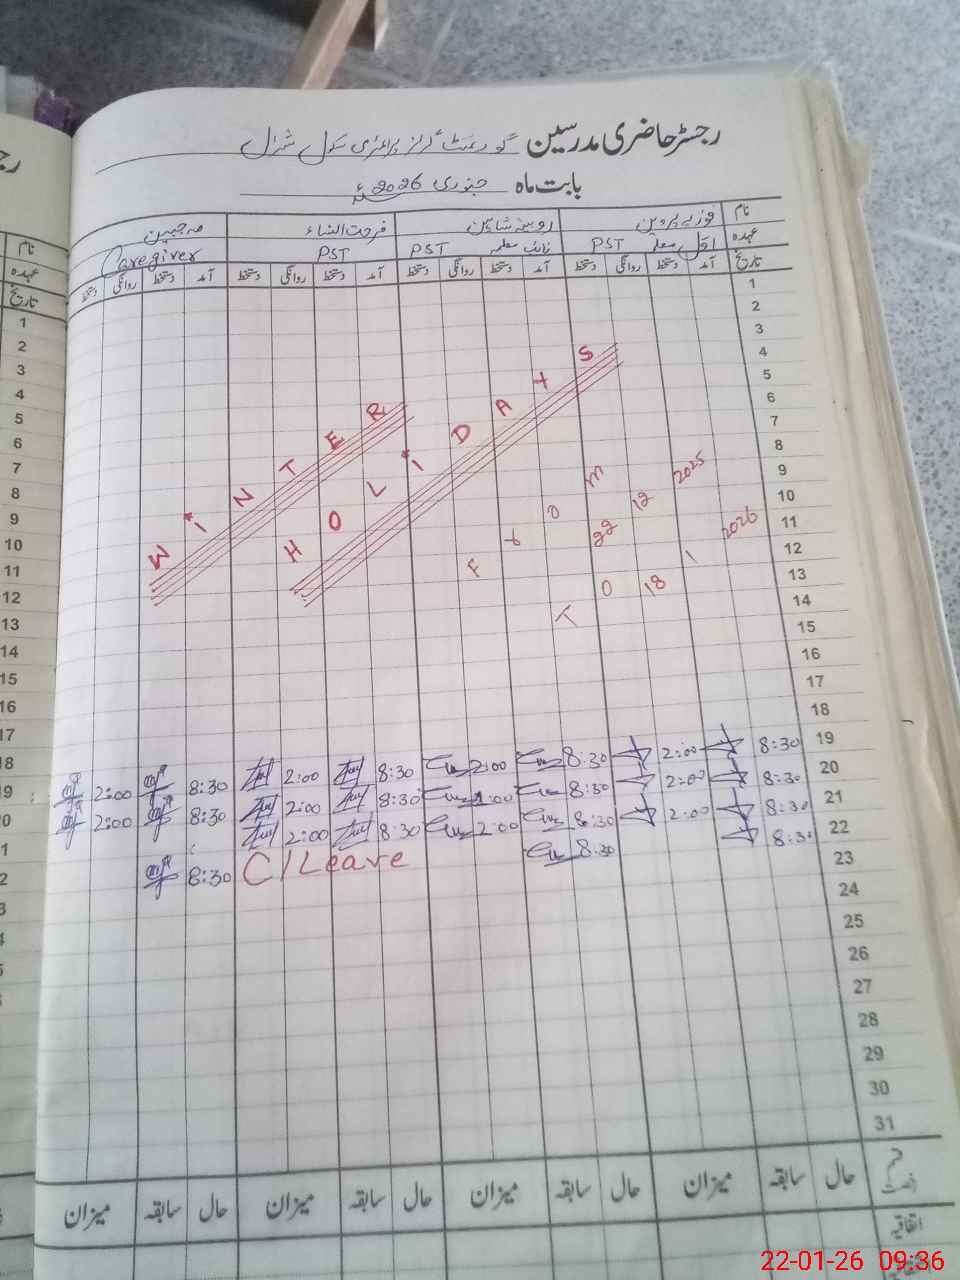 رجسٹر حاضری مدرسین گورنمنٹ گرلز پرائمری سکول
بابت ماہ جنوری 2026ء
نام فوزیہ پروین روبینہ شاہین فرحت النساء مہ جبین
عہدہ اول معلمہ PST نائب معلمہ PST PST Caregiver
تاریخ آمد دستخط روانگی دستخط آمد دستخط روانگی دستخط آمد دستخط روانگی دستخط آمد دستخط روانگی دستخط
1
2
3
4
5
6
7
8
9
10
11
12
13
14
15
16
17
18
WINTER
HOLIDAYS
From 22 12 2025
TO 18 1 2026
19 8:30 2:00 8:30 2:00 8:30 2:00 8:30 2:00
20 8:30 2:00 8:30 2:00 8:30 2:00 8:30 2:00
21 8:30 2:00 8:30 2:00 8:30 2:00
22 8:30 8:30 C/Leave 8:30
23
24
25
26
27
28
29
30
31
قسم رخصت حال سابقہ میزان حال سابقہ میزان حال سابقہ میزان
اتفاقیہ
نام
عہدہ
تاریخ
1
2
3
4
5
6
7
8
9
10
11
12
13
14
15
16
17
18
22-01-26 09:36